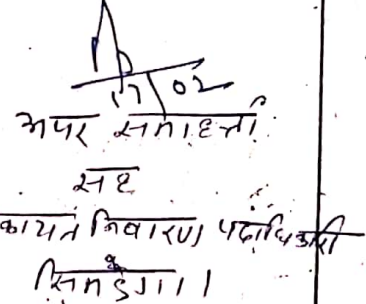 17/02
अपर समाहर्त्ता
सह
कायत निवारण पदाधिकारी
सिमडेगा।